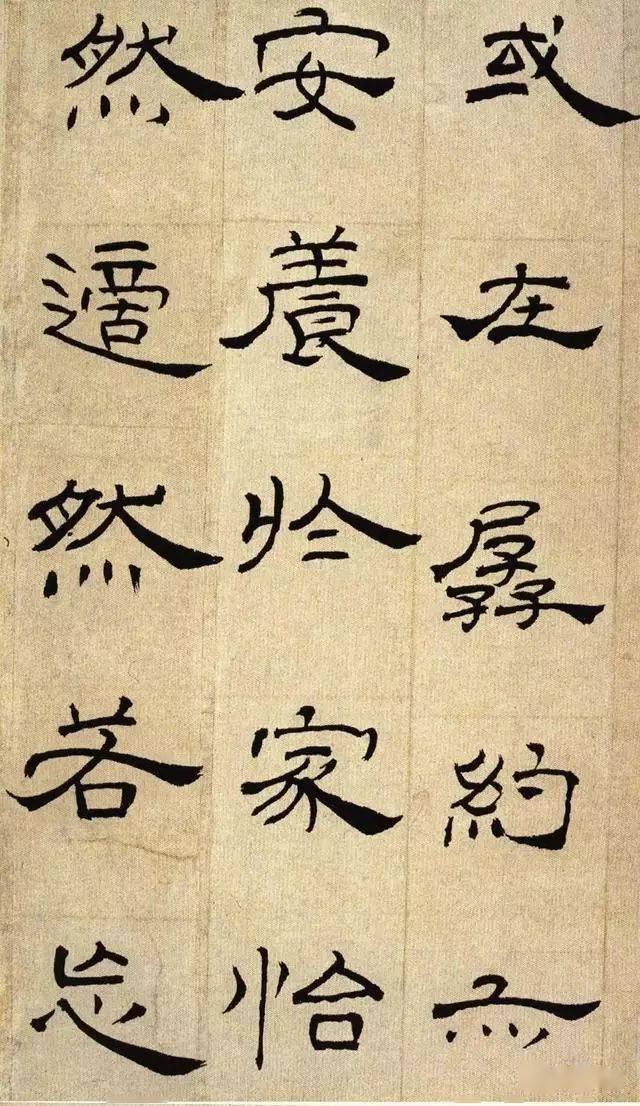 或在孱約亦
安養於家怡
然適然若忘